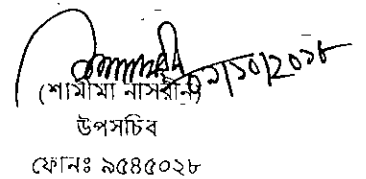 ০২/১০/২০১৮
(শামীমা নাসরীন)
উপসচিব
ফোনঃ ৯৫৪৫০২৮